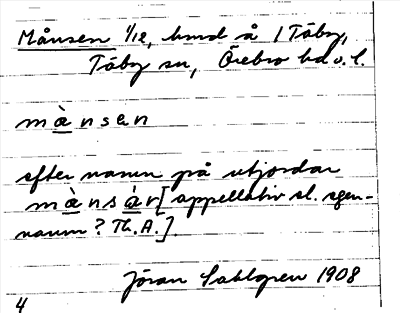 Månsen 1/12, hmd å 1 Täby,
Täby sn, Örebro hd o. l.
mànsen
efter namn på utjordar
mànsàn [appellativ el. egen-
namn? Th. A.].
Jöran Sahlgren 1908
4